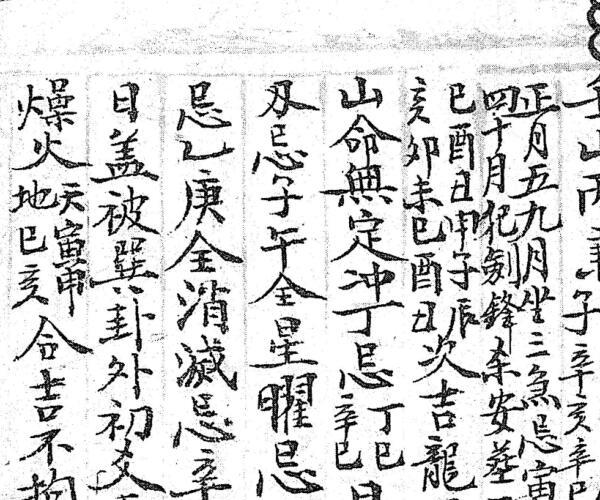 山丙兼子辛亥辛巳
正月五九月坐三煞忌寅
四十月犯劍鋒杀安葬
巳酉丑申子辰
亥卯未巳酉丑次吉龍
山命無定冲丁忌丁巳辛巳日
刄忌子午全星曜忌
忌乙庚全消滅忌辛
日盖被巽卦外初爻
燥火天寅申地巳亥合吉不拘